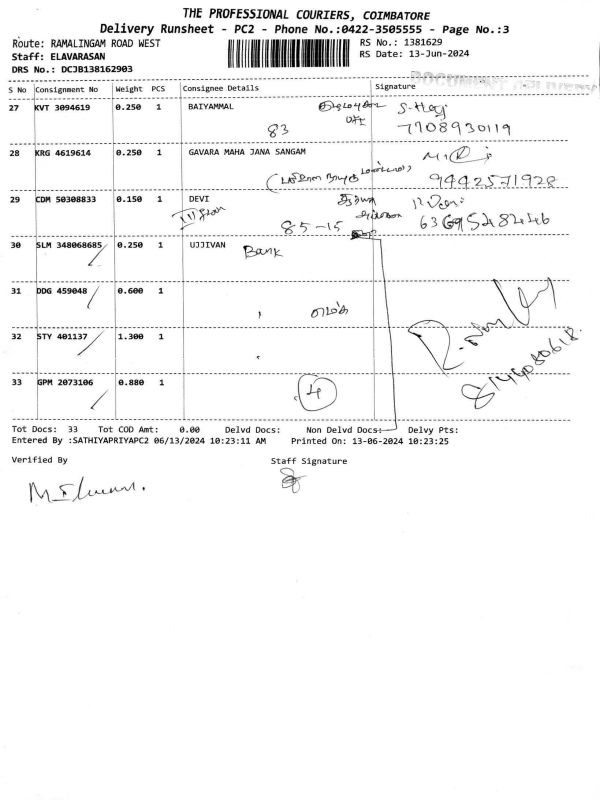 THE PROFESSIONAL COURIERS, COIMBATORE
Delivery Runsheet - PC2 - Phone No.:0422-3505555 - Page No.:3
Route: RAMALINGAM ROAD WEST
RS No.: 1381629
Staff: ELAVARASAN
RS Date: 13-Jun-2024
DRS No.: DCJB138162903
S No Consignment No Weight PCS Consignee Details Signature
27 KVT 3094619 0.250 1 BAIYAMMAL
83 7708930119
28 KRG 4619614 0.250 1 GAVARA MAHA JANA SANGAM
9442571928
29 CDM 50308833 0.150 1 DEVI
85-15
30 SLM 348068685 0.250 1 UJJIVAN
Bank
31 DDG 459048 0.600 1
32 STY 401137 1.300 1
33 GPM 2073106 0.880 1
4
Tot Docs: 33 Tot COD Amt: 0.00 Delvd Docs: Non Delvd Docs: Delvy Pts:
Entered By :SATHIYAPRIYAPC2 06/13/2024 10:23:11 AM Printed On: 13-06-2024 10:23:25
Verified By Staff Signature